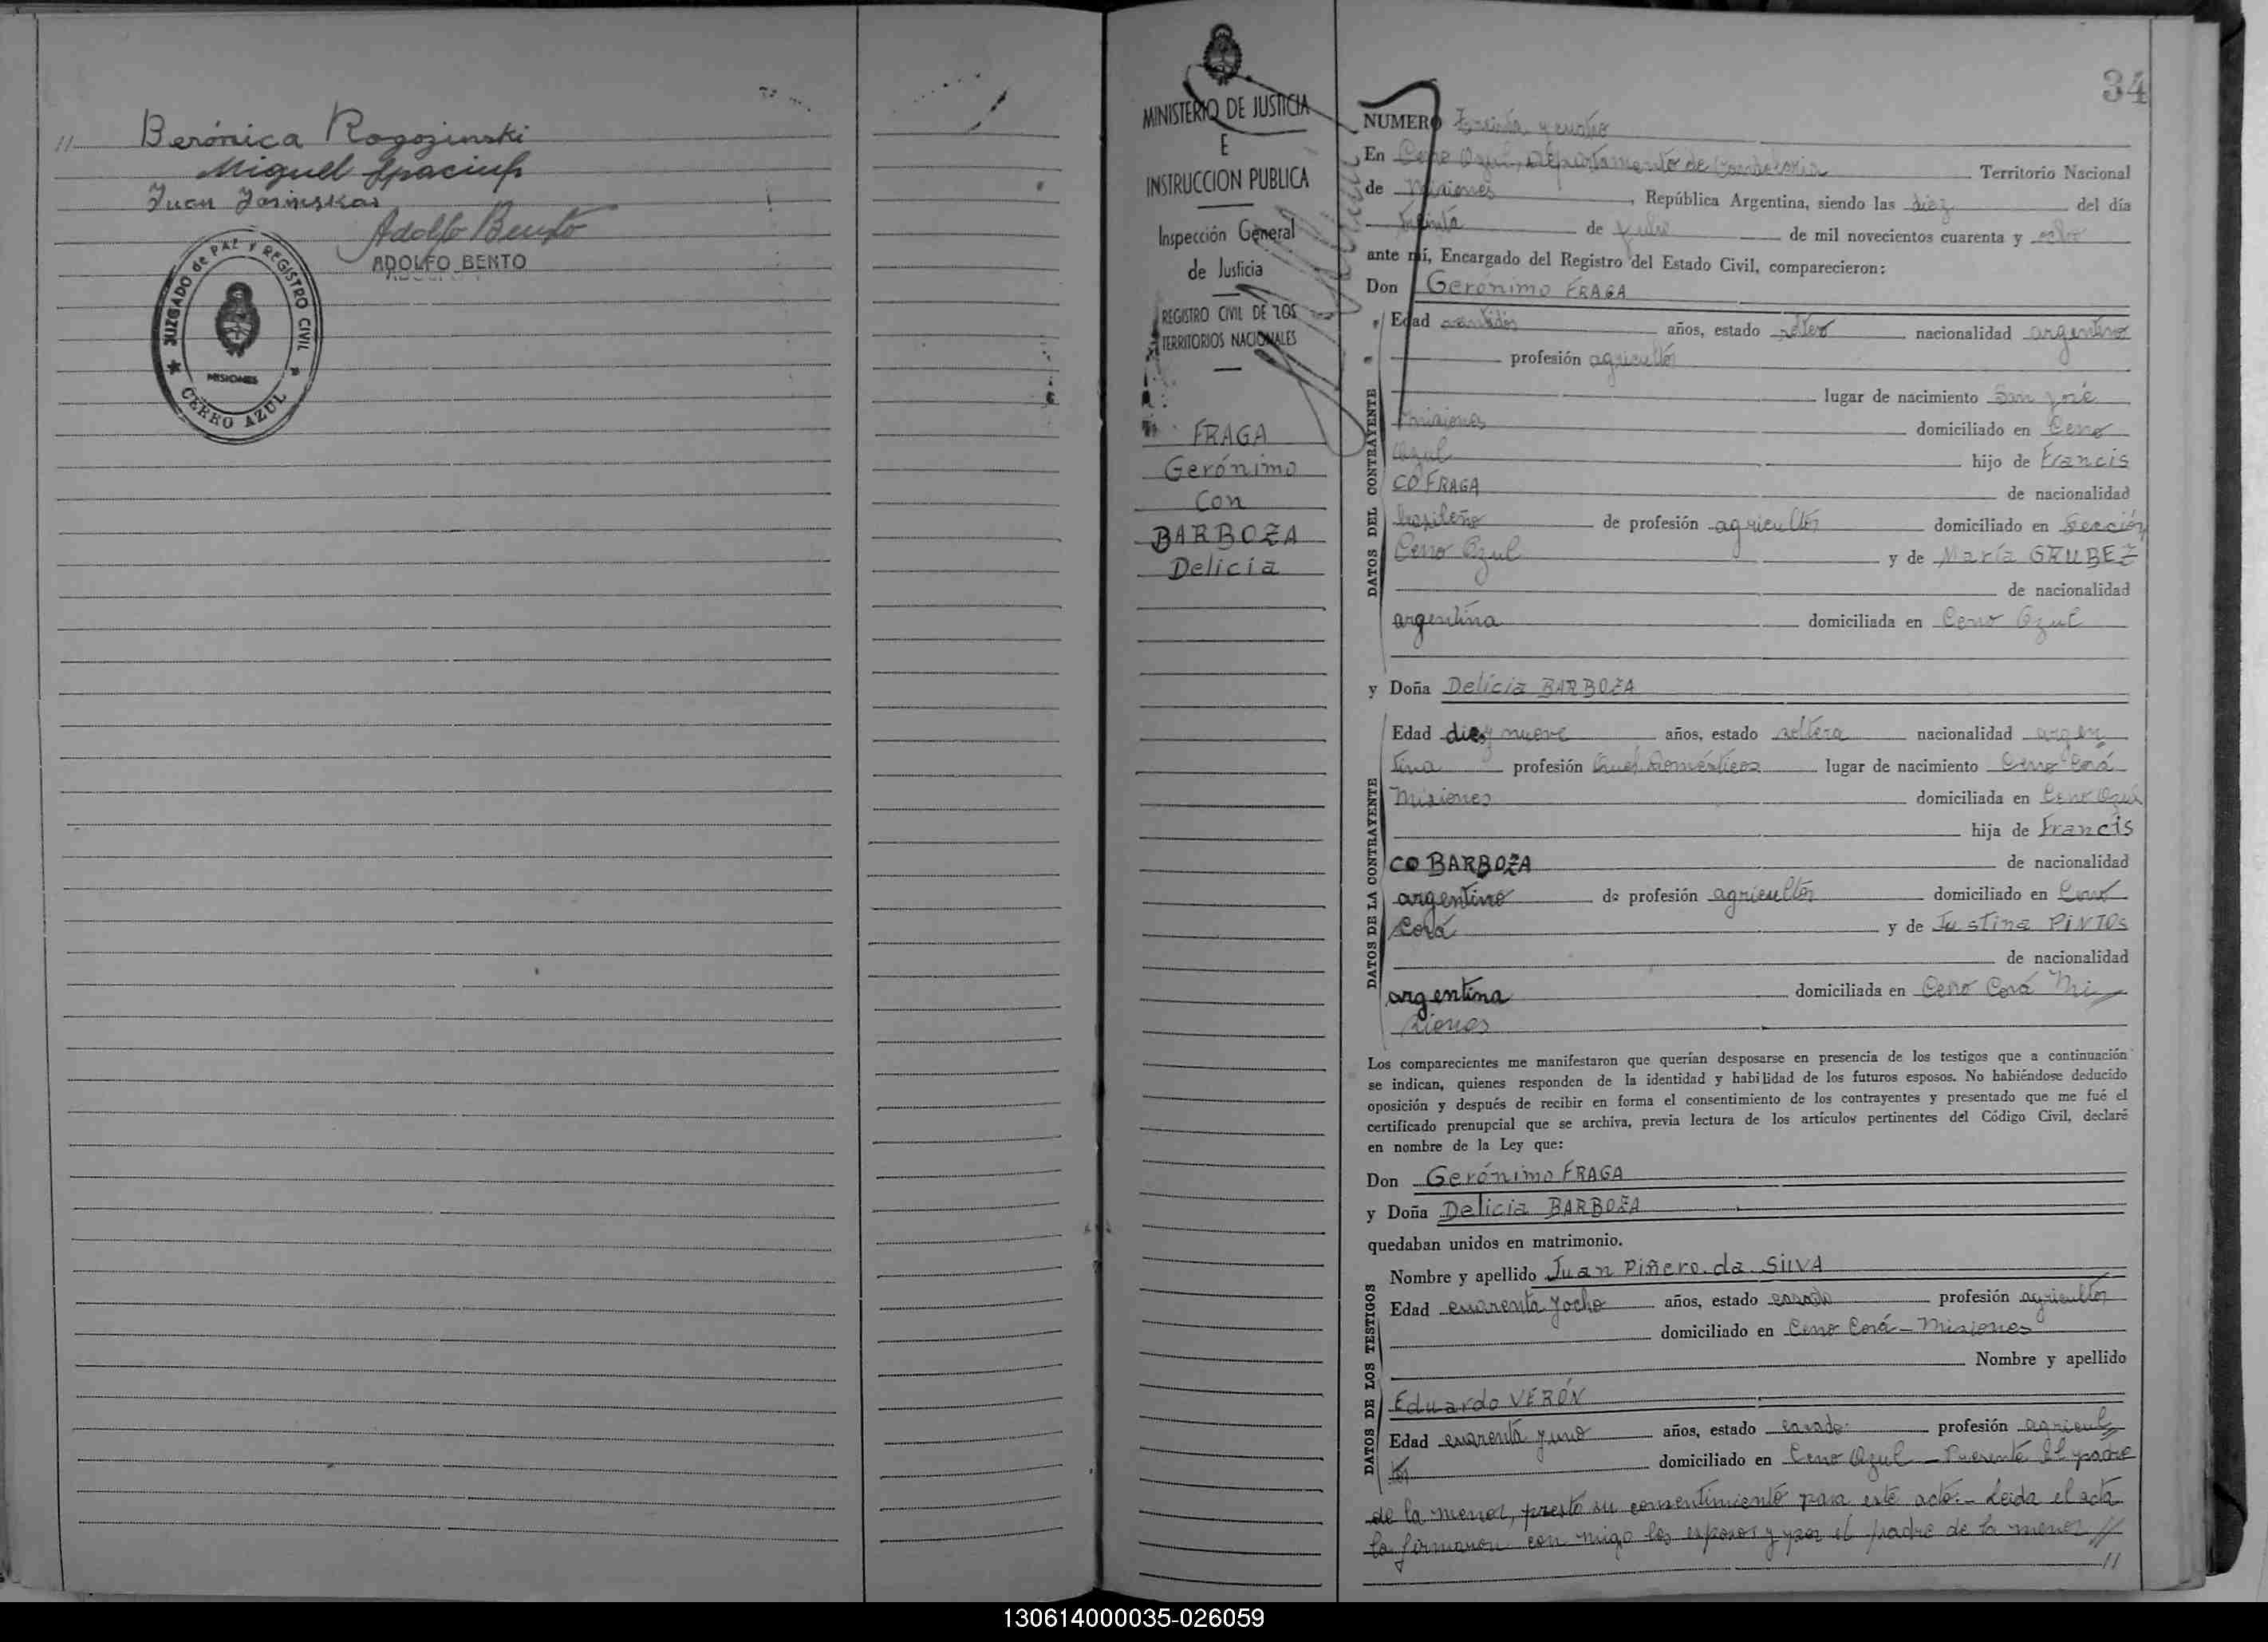 // Berónica Rogozinski
Miguel Spaciuk
Juan Jasinskas
Adolfo Bento
ADOLFO BENTO
JUZGADO de PAZ Y REGISTRO CIVIL
MISIONES
CERRO AZUL
MINISTERIO DE JUSTICIA
E
INSTRUCCION PUBLICA
Inspección General
de Justicia
REGISTRO CIVIL DE LOS
TERRITORIOS NACIONALES
FRAGA
Gerónimo
Con
BARBOZA
Delicia
34
NUMERO Treinta y cuatro
En Cerro Azul, Departamento de Candelaria Territorio Nacional
de Misiones, República Argentina, siendo las diez del día
treinta de julio de mil novecientos cuarenta y ocho
ante mí, Encargado del Registro del Estado Civil, comparecieron:
Don Gerónimo FRAGA
Edad veintidós años, estado soltero nacionalidad argentino
profesión agricultor
lugar de nacimiento San José
Misiones domiciliado en Cerro
Azul hijo de Francis
CO FRAGA de nacionalidad
brasileño de profesión agricultor domiciliado en Sección
Cerro Azul y de María GRUBEZ
de nacionalidad
argentina domiciliada en Cerro Azul
DATOS DEL CONTRAYENTE
y Doña Delicia BARBOZA
Edad diez y nueve años, estado soltera nacionalidad argen
tina profesión Queh. Domésticos lugar de nacimiento Cerro Corá
Misiones domiciliada en Cerro Azul
hija de Francis
CO BARBOZA de nacionalidad
argentino de profesión agricultor domiciliado en Cerro
Corá y de Justina PINTOS
de nacionalidad
argentina domiciliada en Cerro Corá Mi
siones
DATOS DE LA CONTRAYENTE
Los comparecientes me manifestaron que querían desposarse en presencia de los testigos que a continuación
se indican, quienes responden de la identidad y habilidad de los futuros esposos. No habiéndose deducido
oposición y después de recibir en forma el consentimiento de los contrayentes y presentado que me fué el
certificado prenupcial que se archiva, previa lectura de los artículos pertinentes del Código Civil, declaré
en nombre de la Ley que:
Don Gerónimo FRAGA
y Doña Delicia BARBOZA
quedaban unidos en matrimonio.
Nombre y apellido Juan Piñero da SILVA
Edad cuarenta y ocho años, estado casado profesión agricultor
domiciliado en Cerro Corá - Misiones
Nombre y apellido
Eduardo VERÓN
Edad cuarenta y uno años, estado casado profesión agricul
tor domiciliado en Cerro Azul - Presente el padre
DATOS DE LOS TESTIGOS
de la menor, prestó su consentimiento para este acto.- Leída el acta
la firmaron con migo los esposos y por el padre de la menor //
//
130614000035-026059